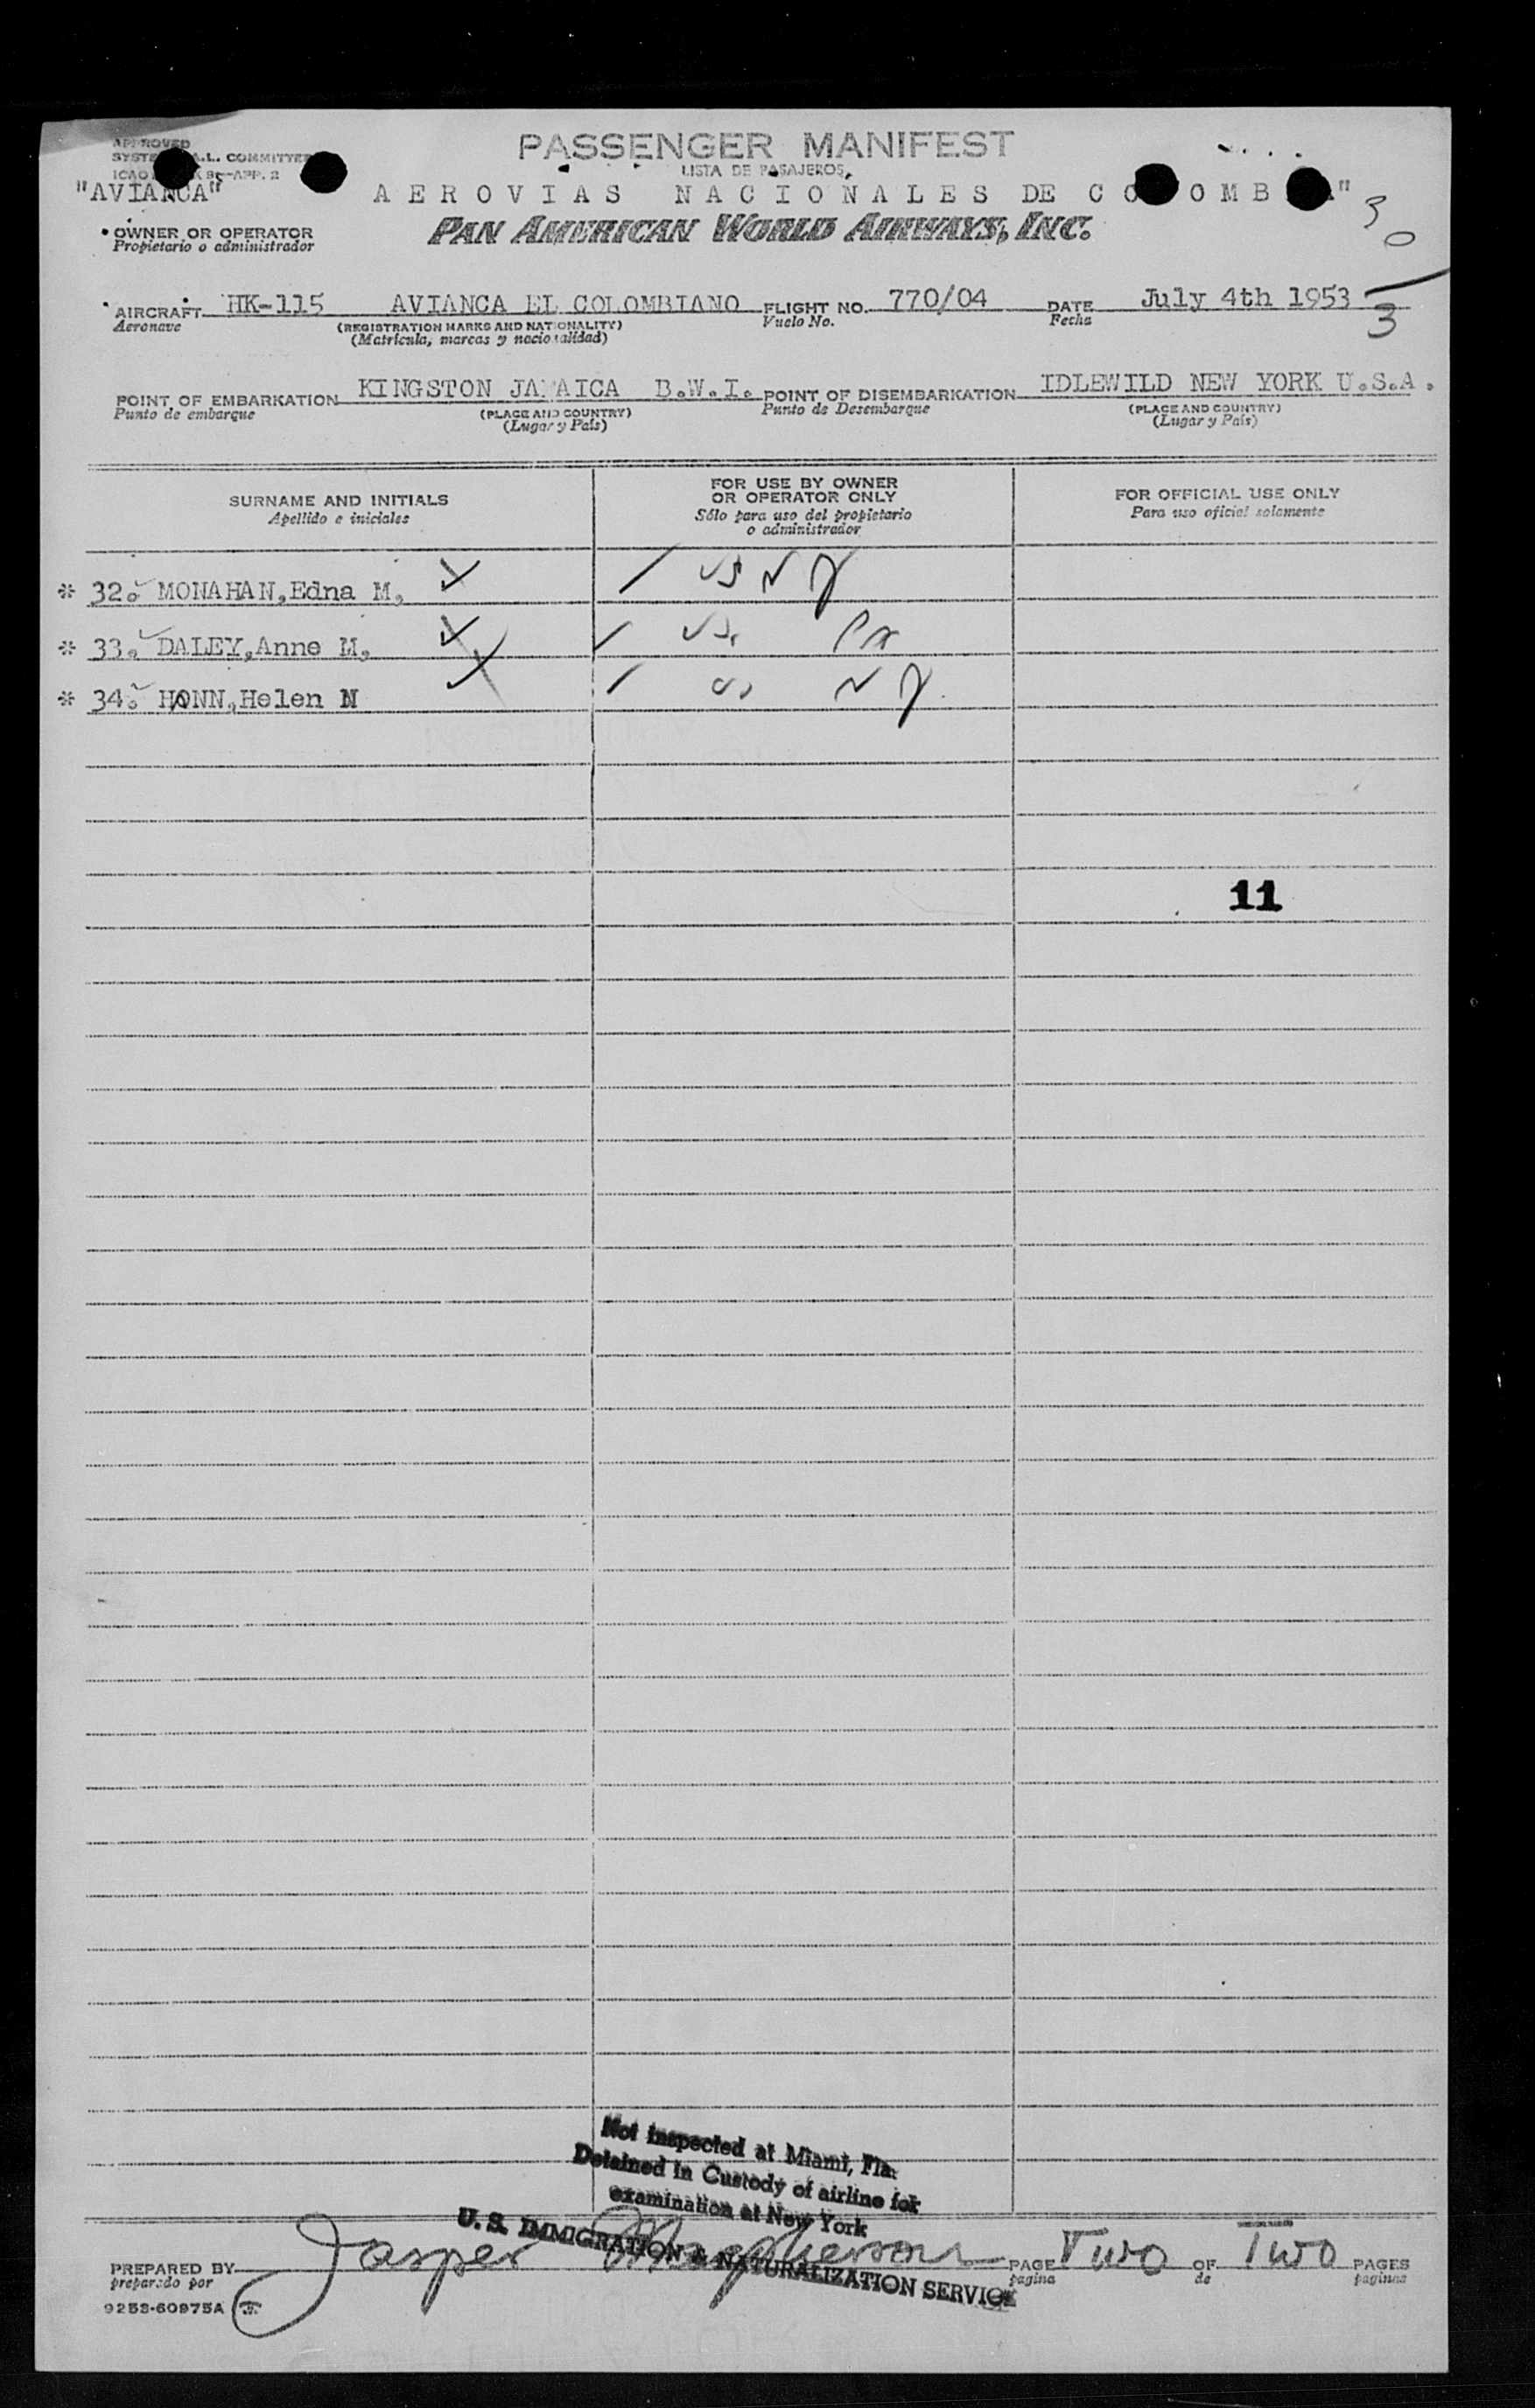 APPROVED
SYSTE A.L. COMMITTEE
ICAO 9—APP. 2
PASSENGER MANIFEST
LISTA DE PASAJEROS
"AVIANCA" AEROVIAS NACIONALES DE CO OMB "
OWNER OR OPERATOR
Propietario o administrador
PAN AMERICAN WORLD AIRWAYS, INC.
30
3
AIRCRAFT HK-115 AVIANCA EL COLOMBIANO FLIGHT NO. 770/04 DATE July 4th 1953
Aeronave (REGISTRATION MARKS AND NATIONALITY) Vuelo No. Fecha
(Matrícula, marcas y nacionalidad)
POINT OF EMBARKATION KINGSTON JAMAICA B.W.I. POINT OF DISEMBARKATION IDLEWILD NEW YORK U.S.A.
Punto de embarque (PLACE AND COUNTRY) Punto de Desembarque (PLACE AND COUNTRY)
(Lugar y País) (Lugar y País)
SURNAME AND INITIALS
Apellido e iniciales
FOR USE BY OWNER
OR OPERATOR ONLY
Sólo para uso del propietario
o administrador
FOR OFFICIAL USE ONLY
Para uso oficial solamente
* 32. MONAHAN,Edna M, 1 US NY
* 33. DALEY,Anne M, 1 US
* 34. HANN,Helen N 1 US NY
11
Not inspected at Miami, Fla.
Detained in Custody of airline for
examination at New York
U. S. IMMIGRATION & NATURALIZATION SERVICE
PREPARED BY Jasper Macpherson PAGE Two OF Two PAGES
preparado por pagina de paginas
9253-60975A